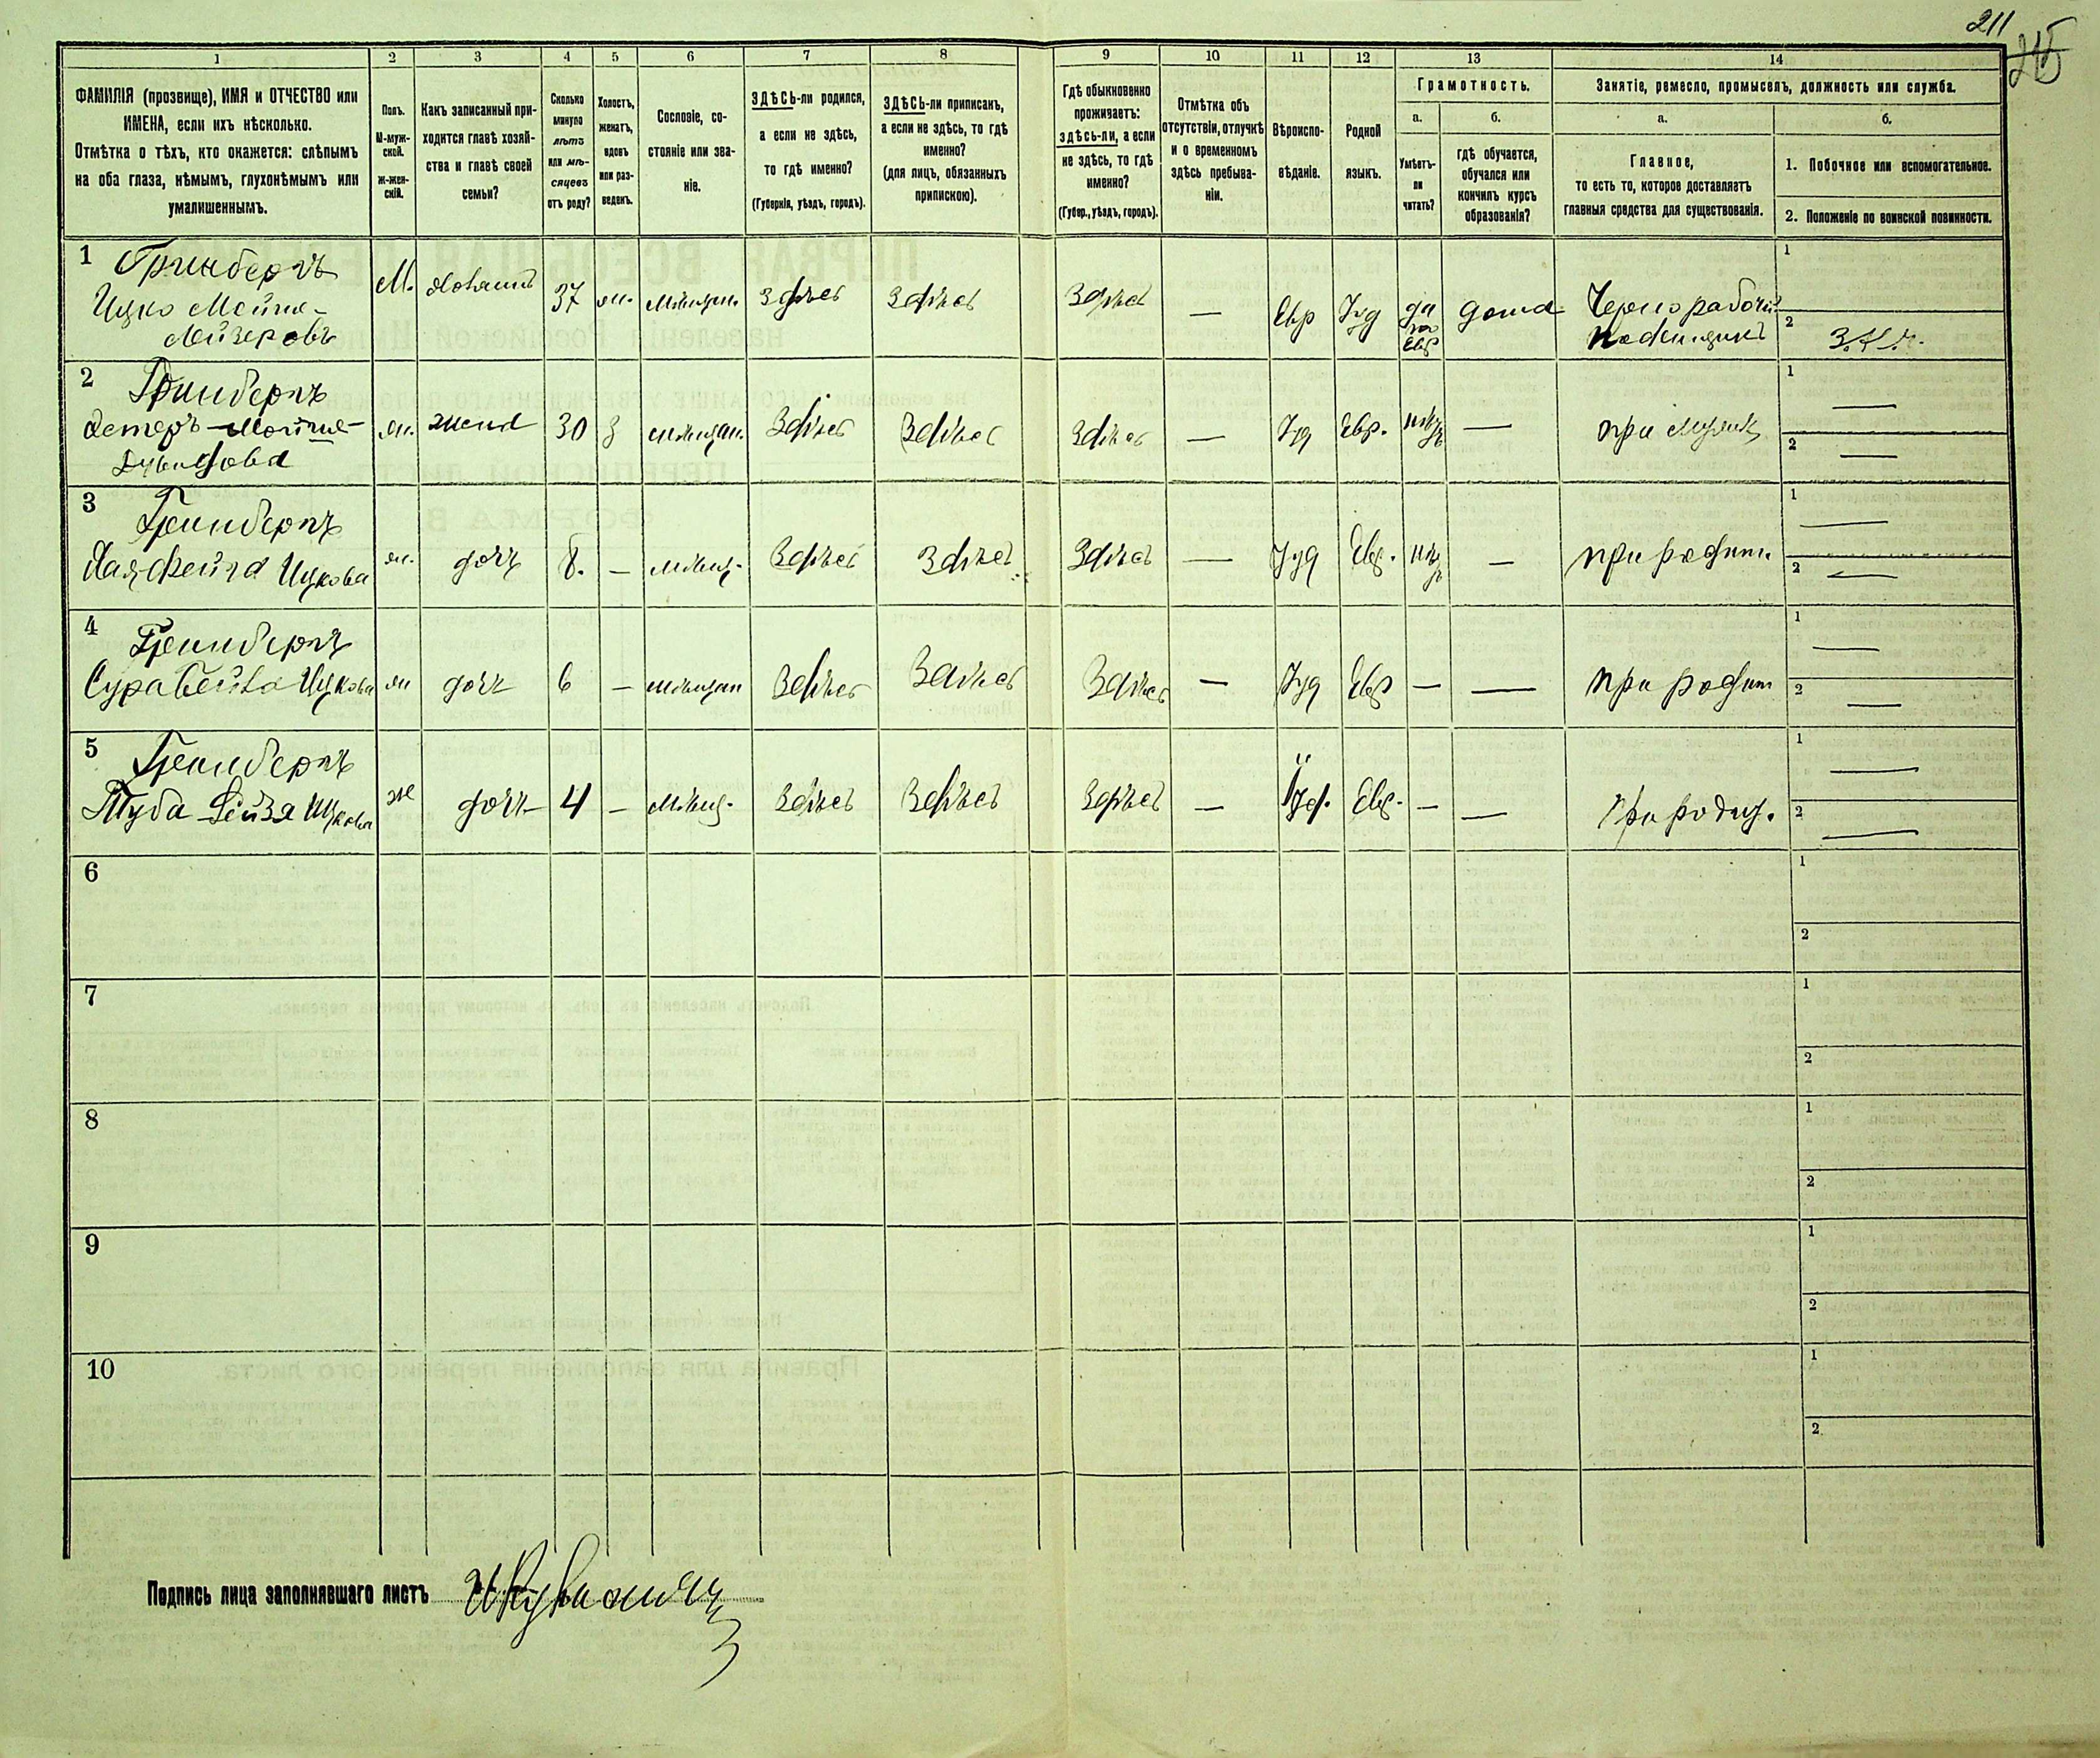 211
215
1 2 3 4 5 6 7 8 9 10 11 12 13 14
ФАМИЛІЯ (прозвище), ИМЯ и ОТЧЕСТВО или
ИМЕНА, если ихъ нѣсколько.
Отмѣтка о тѣхъ, кто окажется: слѣпымъ
на оба глаза, нѣмымъ, глухонѣмымъ или
умалишеннымъ.
Полъ.
М-муж-
ской.
Ж-жен-
скій.
Какъ записанный при-
ходится главѣ хозяй-
ства и главѣ своей
семьи?
Сколько
минуло
лѣтъ
или мѣ-
сяцевъ
отъ роду?
Холостъ,
женатъ,
вдовъ
или раз-
веденъ.
Сословіе, со-
стояніе или зва-
ніе.
ЗДѢСЬ-ли родился,
а если не здѣсь,
то гдѣ именно?
(Губернія, уѣздъ, городъ).
ЗДѢСЬ-ли приписанъ,
а если не здѣсь, то гдѣ
именно?
(для лицъ, обязанныхъ
припискою).
Гдѣ обыкновенно
проживаетъ:
здѣсь-ли, а если
не здѣсь, то гдѣ
именно?
(Губер., уѣздъ, городъ).
Отмѣтка объ
отсутствіи, отлучкѣ
и о временномъ
здѣсь пребыва-
ніи.
Вѣроиспо-
вѣданіе.
Родной
языкъ.
Грамотность.
а.
Умѣетъ-
ли
читать?
б.
гдѣ обучается,
обучался или
кончилъ курсъ
образованія?
Занятіе, ремесло, промыселъ, должность или служба.
а.
Главное,
то есть то, которое доставляетъ
главныя средства для существованія.
б.
1. Побочное или вспомогательное.
2. Положеніе по воинской повинности.
1 Гринбергъ
Ицко Мойше-
Лейзеровъ
М. хозяинъ 37 ж. мѣщан. здѣсь здѣсь здѣсь — Евр Iуд да по Евр дома Чернорабочій поденщикъ
1
2
2 Гринбергъ
Эстеръ Мойше-
Дувидова
ж. жена 30 з мѣщан. Здѣсь Здѣсь Здѣсь — Iуд Евр. — при мужѣ
1 —
2 —
3 Гринбергъ
Хая Фейга Ицкова
ж. дочь 8. — мѣщ. Здѣсь Здѣсь Здѣсь — Iуд Евр. — при родит.
1 —
2 —
4 Гринбергъ
Сура Бейла Ицкова
ж дочь 6 — мѣщан Здѣсь Здѣсь Здѣсь — Iуд Евр — — при родит
1 —
2 —
5 Гринбергъ
Туба Лейзя Ицкова
ж дочь 4 — мѣщ. Здѣсь Здѣсь Здѣсь — Iуд. Евр. — — При родит.
1 —
2 —
6 1
2
7 1
2
8 1
2
9 1
2
10 1
2
Подпись лица заполнявшаго листъ